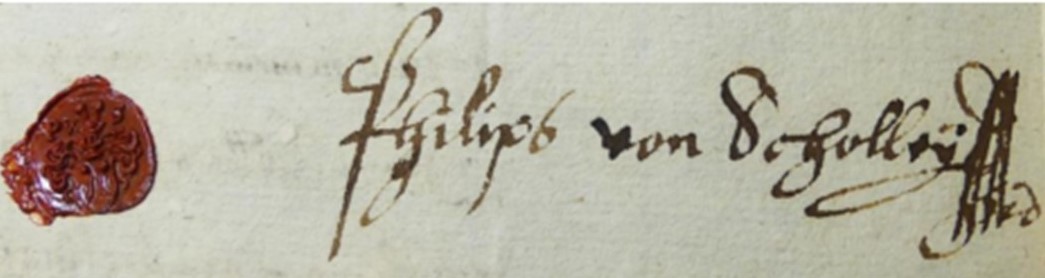 Philips von Scholleÿ